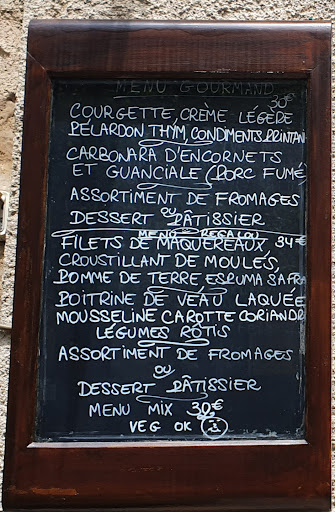 MENU GOURMAND
30€
COURGETTE, CRÈME LÉGÈRE
PELARDON THYM, CONDIMENTS PRINTAN
CARBONARA D'ENCORNETS
ET GUANCIALE (PORC FUMÉ
ASSORTIMENT DE FROMAGES
OU
DESSERT PÂTISSIER
MENU REGALOU
FILETS DE MAQUEREAUX, 34€
CROUSTILLANT DE MOULES,
POMME DE TERRE ESPUMA SAFRA
POITRINE DE VEAU LAQUÉE
MOUSSELINE CAROTTE CORIANDR
LÉGUMES RÔTIS
ASSORTIMENT DE FROMAGES
OU
DESSERT PÂTISSIER
MENU MIX 30€
VEG OK